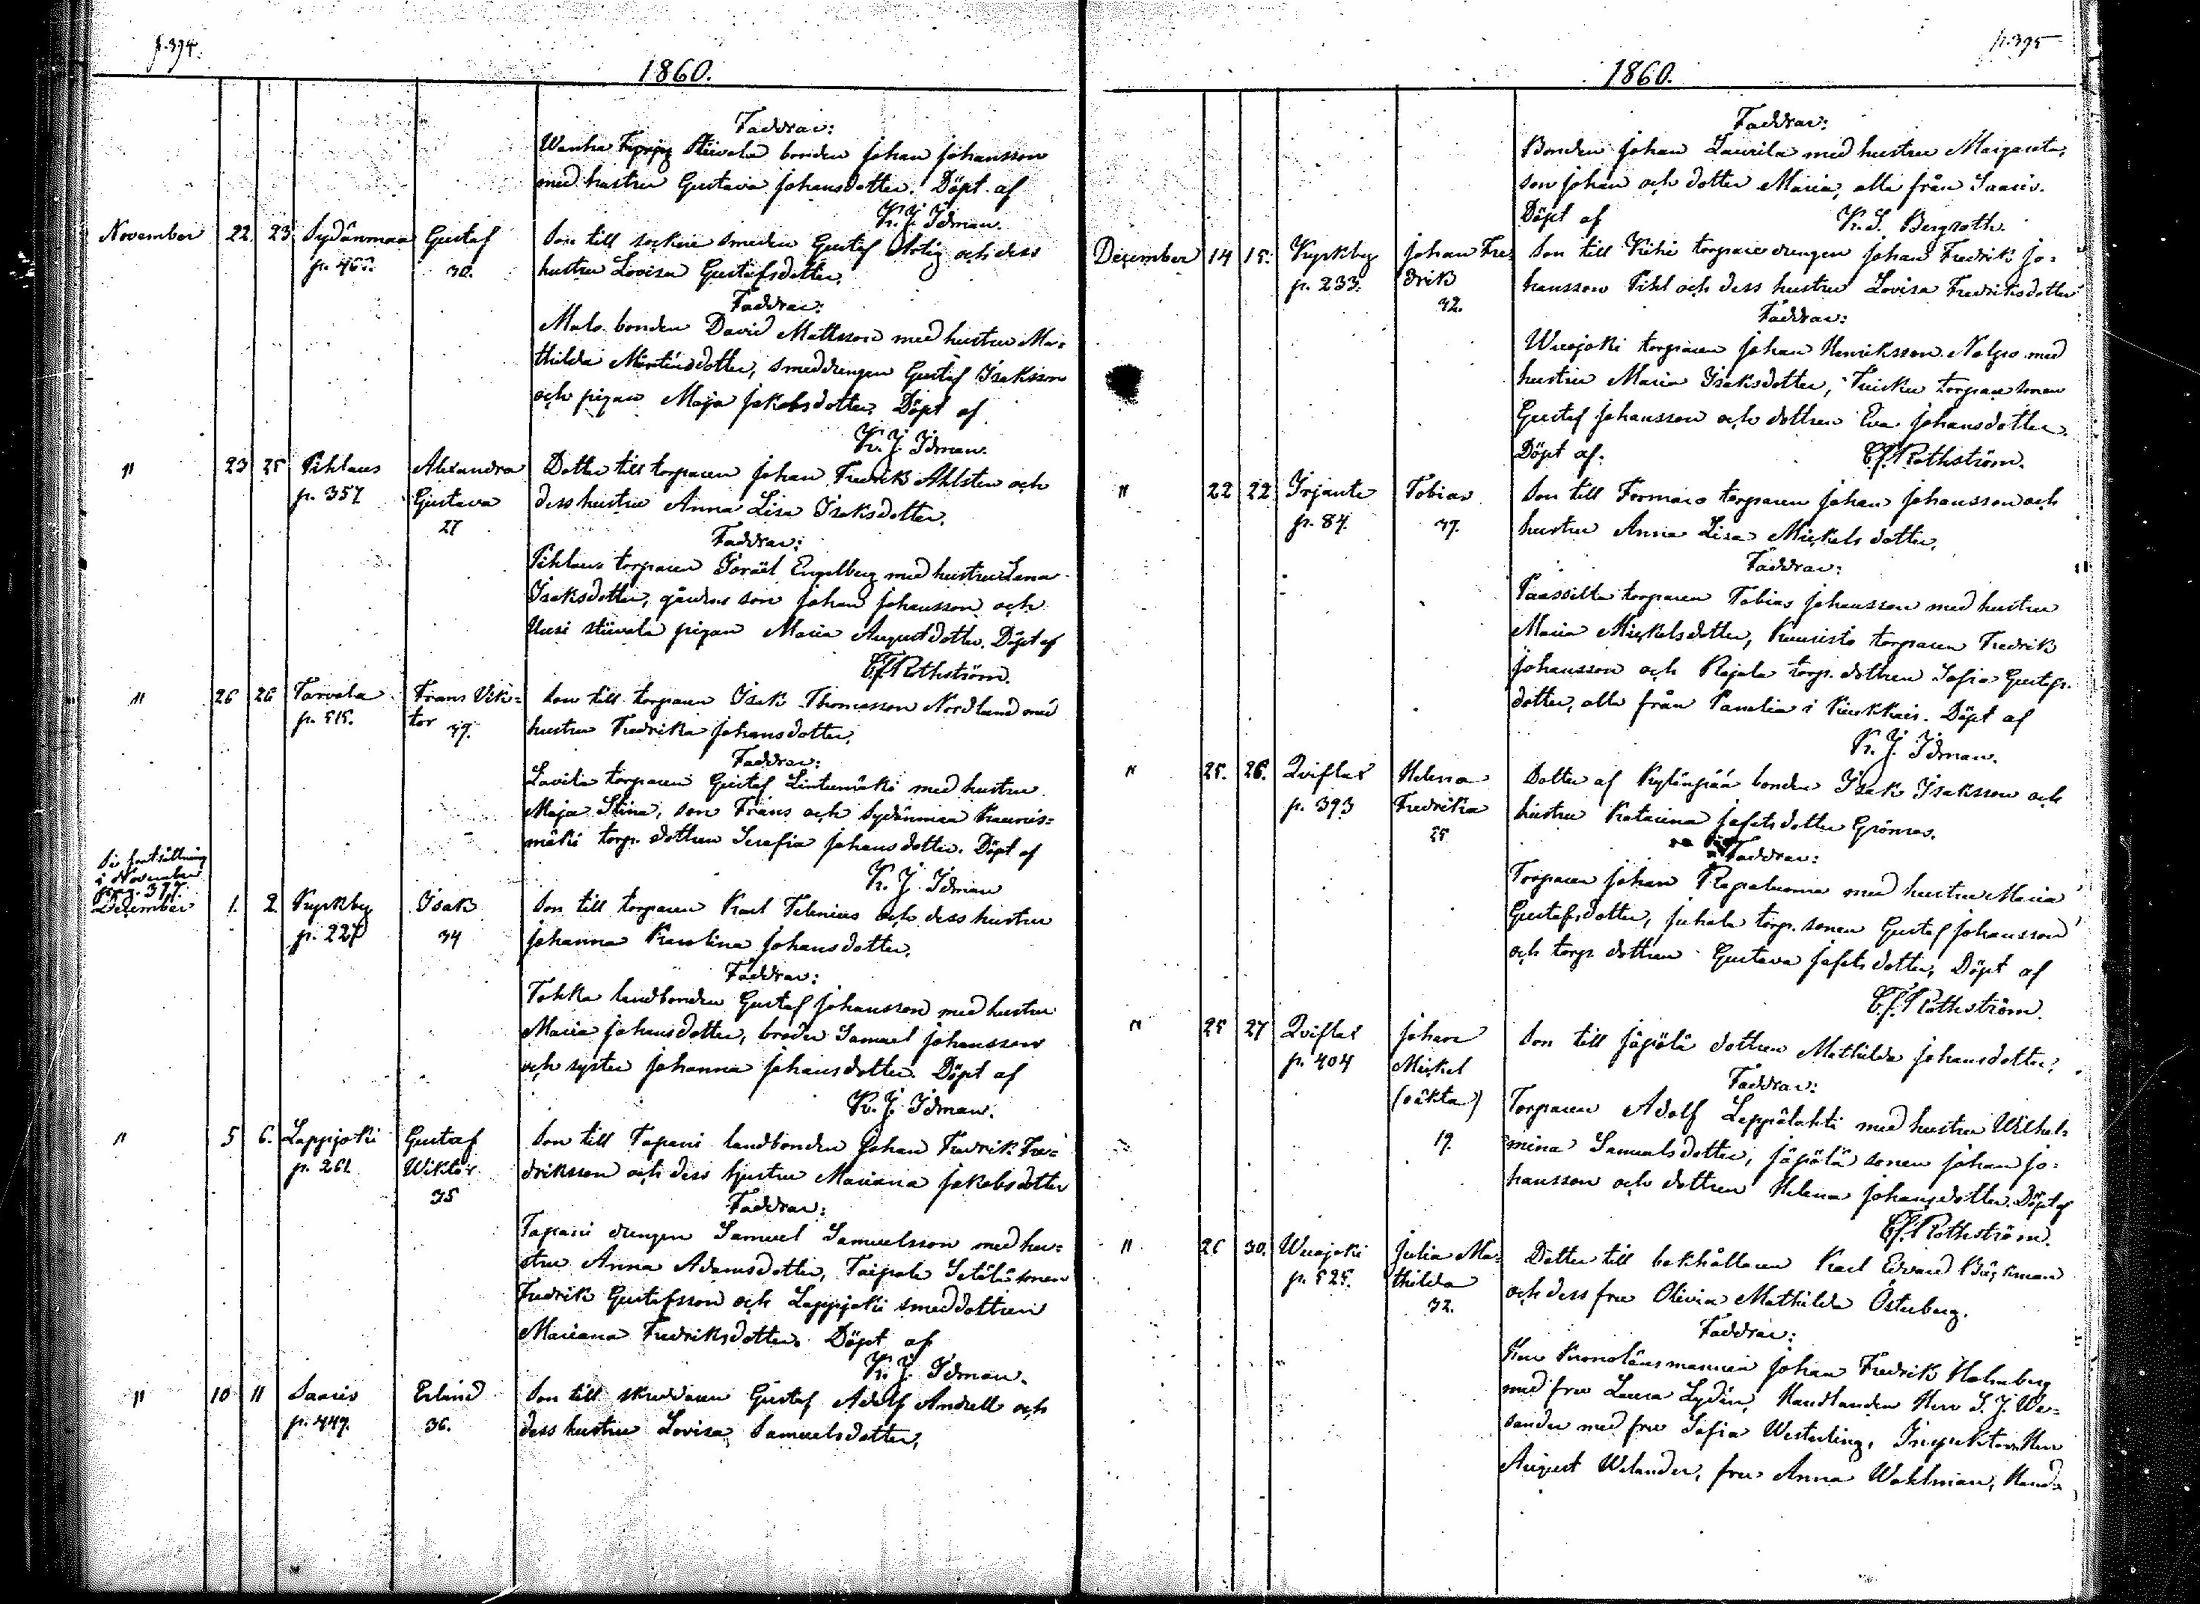 p. 394.
1860.
Faddrar:
Wanha Stüvala bonden Johan Johansson
med hustru Gustava Johansdotter. Döpt af
K. J. Idman.
November 22 23 Sydänmaa Gustaf Son till socken smeden Gustaf och dess
p. 30. hustru Lovisa Gustafsdotter.
Faddrar:
Malo bonden David Mattsson med hustru Ma-
thilda Mårtensdotter, smeddrengen Gustaf Isaksson
och pigan Maja Jakobsdotter. Döpt af
K. J. Idman.
" 23 25 Pihlaus Alexandra Dotter till torparen Johan Fredrik Ahlsten och
p. 357 Gustava dess hustru Anna Lisa Isaksdotter.
27
Faddrar:
Pihlaus torparen Israël Engelberg med hustru Lena
Isaksdotter, gårdens son Johan Johansson och
Uusi stüvala pigan Maria Augustdotter. Döpt af
Rothström.
" 26 26 Torvela Frans Vik- Son till torparen Isak Thomasson Nordlund med
p. 515. tor 37. hustru Fredrika Johansdotter.
Faddrar:
Lavila torparen Gustaf Lintumäki med hustru
Maja Stina, son Frans och Sydänmaa Kaunis-
mäki torp. dottren Serafia Johansdotter. Döpt af
K. J. Idman
Se fortsättning
i November
pag. 397.
December 1. 2 Kyrkby Isak Son till torparen Karl Telenius och dess hustru
p. 227 34 Johanna Karolina Johansdotter.
Faddrar:
Tokka landbonden Gustaf Johansson med hustru
Maria Johansdotter, broder Samuel Johansson
och syster Johanna Johansdotter. Döpt af
K. J. Idman.
" 5 6. Lappijoki Gustaf Son till Tapani landbonden Johan Fredrik Fre-
p. 261 Wiktor driksson och dess hustru Mariana Jakobsdotter
35
Faddrar:
Tapani drengen Samuel Samuelsson med hu-
stru Anna Adamsdotter, Taipale Setälä sonen
Fredrik Gustafsson och Lappijoki smeddottren
Mariana Fredriksdotter. Döpt af
K. J. Idman.
" 10 11 Saaris Erland Son till skreddaren Gustaf Adolf Andell och
p. 447. 36. dess hustru Lovisa Samuelsdotter.
p. 395
1860.
Faddrar:
Bonden Johan Laurila med hustru Margareta,
son Johan och dotter Maria, alla från Saaris.
Döpt af K. S. Bergroth.
December 14 15. Kyrkby Johan Fre- Son till Kihi torpare drengen Johan Fredrik Jo-
p. 233. drik hansson Pihl och dess hustru Lovisa Fredriksdotter
32.
Faddrar:
Wuojoki torparen Johan Henriksson Nolpo med
hustru Maria Isaksdotter, Tuisku torpare sonen
Gustaf Johansson och dottren Eva Johansdotter.
Döpt af. Rothström.
" 22 22 Irjante Tobias Son till Formaro torparen Johan Johansson och
p. 84. 37. hustru Anna Lisa Mickelsdotter.
Faddrar:
Paassilta torparen Tobias Johansson med hustru
Maria Mickelsdotter, Kuusisto torparen Fredrik
Johansson och Rajala torp. dottren Sofia Gustafs-
dotter, alla från Panelia i Kiukkais. Döpt af
K. J. Idman.
" 25. 26. Qviflax Helena Dotter af Kylänpää bonden Isak Isaksson och
p. 393 Fredrika hustru Katarina Jafetsdotter Grönroos.
25
Faddrar:
Torparen Johan Rapaluoma med hustru Maria
Gustafsdotter, Juhala torp. sonen Gustaf Johansson
och torp. dottren Gustava Jafetsdotter, Döpt af
Rothström.
" 25 27 Qviflax Johan Son till Jäpölä dottren Mathilda Johansdotter.
p. 404 Mickel
(oäkta)
19.
Faddrar:
Torparen Adolf Leppälahti med hustru Wilhel-
mina Samuelsdotter, Jäpölä sonen Johan Jo-
hansson och dottren Helena Johansdotter. Döpt af
Rothström.
" 26 30. Wuojoki Julia Ma- Dotter till bokhållaren Karl Edvard Björkman
p. 525. thilda och dess fru Olivia Mathilda Österberg.
32.
Faddrar:
Herr Kronolänsmannen Johan Fredrik Holmberg
med fru Laura Lydén, Handlanden Herr S. J. We-
sander med fru Sofia Westerling, Inspektoren Herr
August Welander, fru Anna Wahlman, Hand-